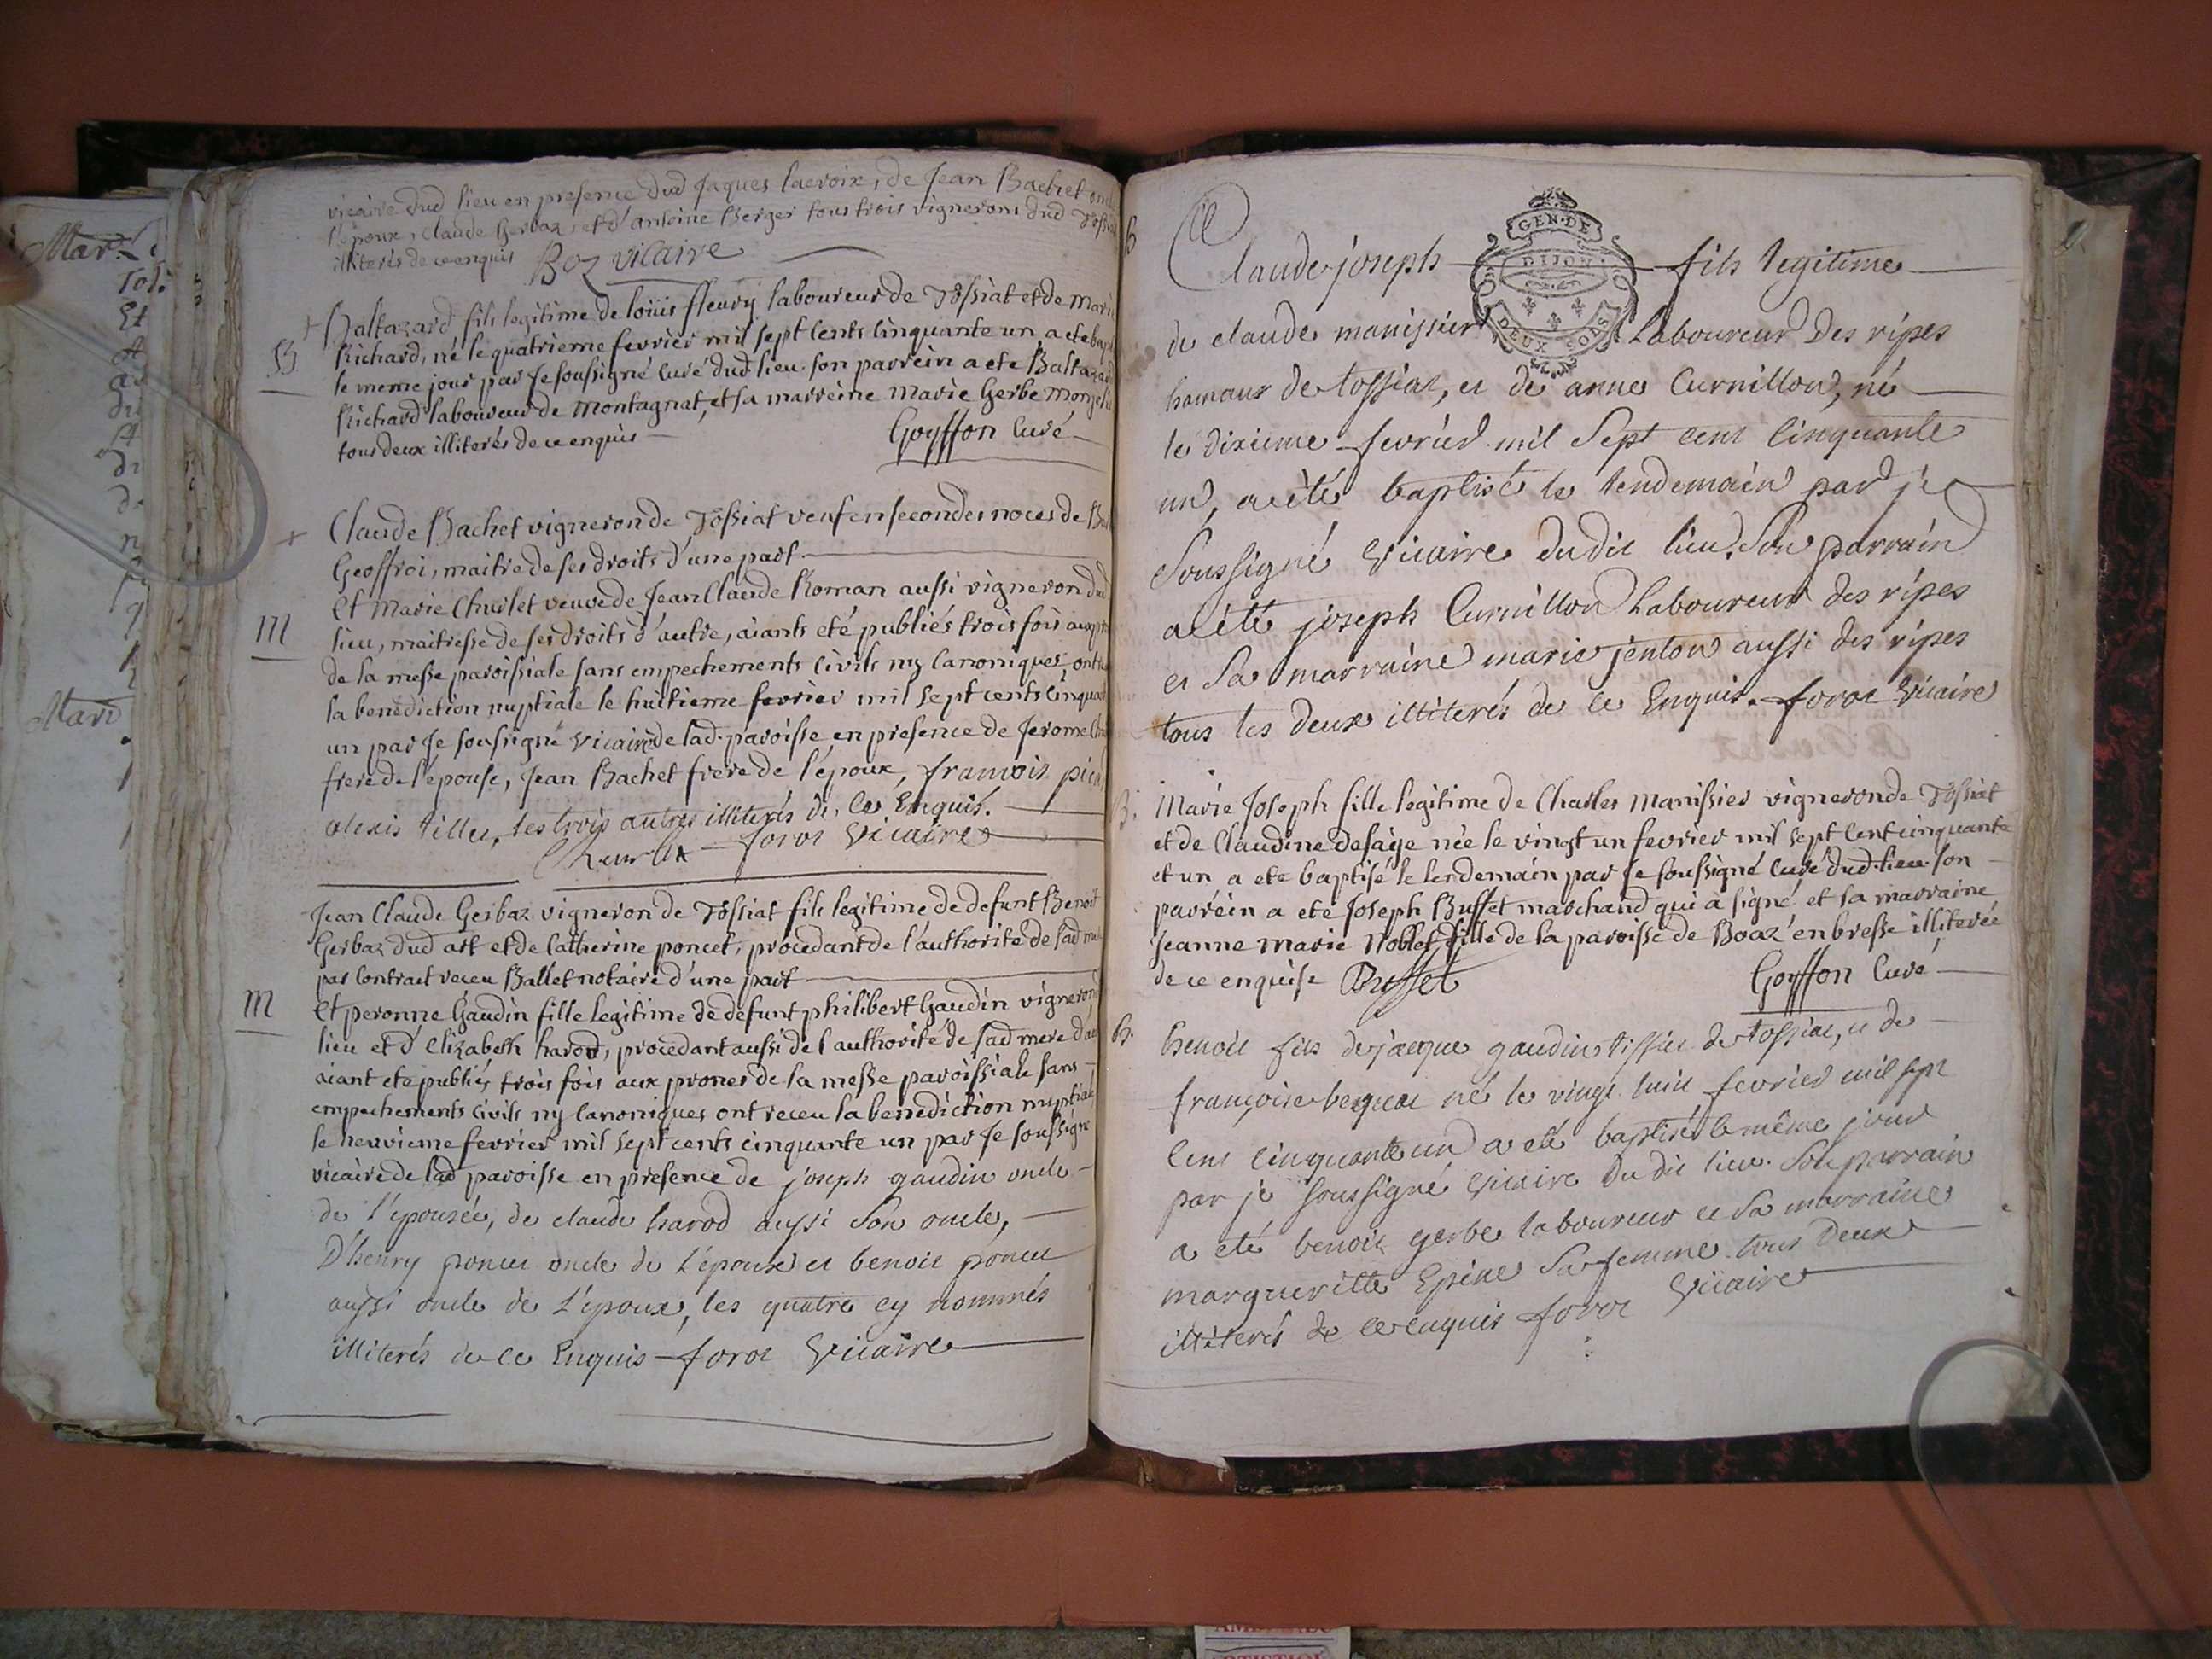 vicaire dud lieu en presence dud Jaques lacroix, de Jean Bachet
l'époux, claude Gerbaz, et d'antoine Berger tous trois vignerons dud
illiterés de ce enquis Boz vicaire
B
Baltazard fils legitime de loüis fleury laboureur de Tossiat et de
Richard, né le quatrieme fevrier mil sept cents cinquante un a ete
le meme jour par Je soussigné curé dud. lieu. son parrein a ete
Richard laboureur de Montagnat, et sa marreine Marie Gerbe
tous deux illiterés de ce enquis
Goyffon curé
Claude Bachet vigneron de Tossiat veuf en secondes noces de
Geoffroi, maitre de ses droits d'une part
M
Et Marie Churlet veuve de Jean Claude Roman aussi vigneron
lieu, maitresse de ses droits d'autre, aiants eté publiés trois fois
de la messe paroissiale sans empechements civils ny canoniques,
la benediction nuptiale le huitieme fevrier mil sept cents
un par Je soussigné vicaire de lad. paroisse en presence de Jerome
frere de l'épouse, Jean Bachet frere de l'époux, francois
alexis tillet, les trois autres illiterés de ce Enquis.
foroz vicaire
Jean Claude Gerbaz vigneron de Tossiat fils legitime de defunt Benoit
Gerbaz dud art et de Catherine poncet, procedant de l'authorité de lad
par contract receu Ballet notaire d'une part
M
Et peronne Gaudin fille legitime de defunt philibert Gaudin vigneron
lieu et d'Elizabeth harod, procedant aussi de l'authorité de lad mere
aiant ete publiés trois fois aux prones de la messe paroissiale sans
empechements civils ny canoniques ont receu la benediction nuptiale
le neuvieme fevrier mil sept cents cinquante un par Je soussigné
vicaire de lad paroisse en presence de joseph gaudin oncle
de l'épousée, de claude harod aussi son oncle,
D'henry poncet oncle de l'époux et benoit poncet
aussi oncle de l'époux, les quatre cy nommés
illiterés de ce Enquis foroz vicaire
B
GEN. DE
DIJON
DEUX SOLS
Claude joseph fils legitime
de claude manissier laboureur Des ripes
hameau de tossiat, et de anne Curnillon, né
le dixieme fevrier mil Sept cent Cinquante
un, a été baptisé le lendemain par je
Soussigné vicaire dudit lieu. Son parrain
a été joseph Curnillon Laboureur des ripes
et Sa marraine marie jenton aussi des ripes
tous les deux illiterés de ce Enquis. foroz vicaire
B.
Marie Joseph fille legitime de Charles Manissier vigneron de Tossiat
et de Claudine desaije née le vingt un fevrier mil sept cent cinquante
et un a ete baptisé le lendemain par Je soussigné curé dud. lieu. son
parréin a ete Joseph Buffet marchand qui à signé et sa marraine
Jeanne Marie Noblet fille de la paroisse de Boaz en bresse illiterée
de ce enquise Buffet
Goyffon curé
B.
benoit fils de jacque gaudin tissier de tossiat, et de
françoise bequat né le vingt huit fevrier mil sept
Cent Cinquante un a eté baptisé le même jour
par je soussigné vicaire du dit lieu. Son parrain
a eté benoit gerbe laboureur et Sa marraine
margueritte Epine Sa femme tous Deux
illiterés de ce Enquis foroz vicaire